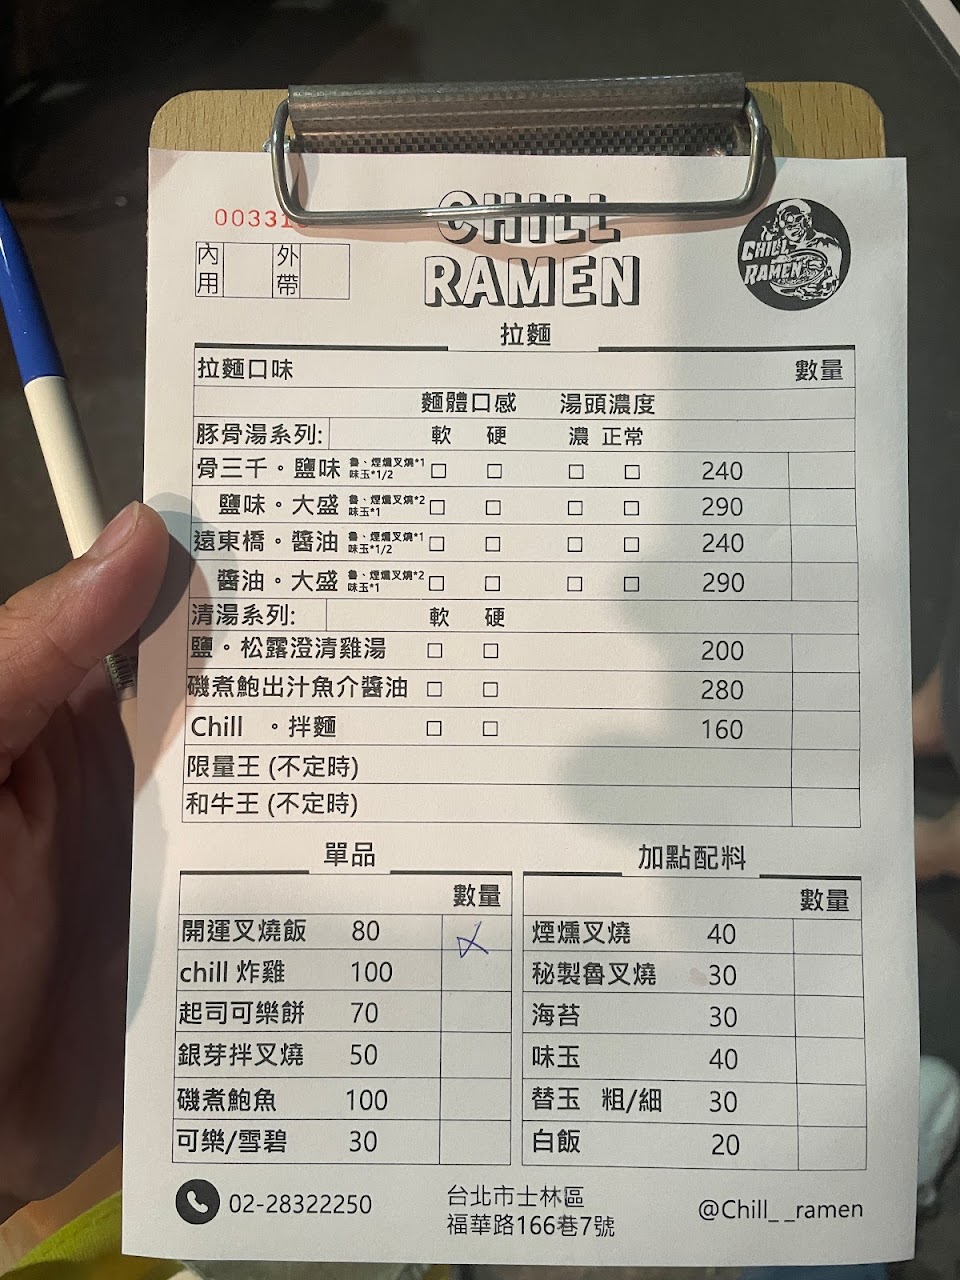 CHILL
RAMEN
CHILL
RAMEN
內用 外帶
拉麵
拉麵口味 數量
麵體口感 湯頭濃度
豚骨湯系列: 軟 硬 濃 正常
骨三千。鹽味 魯、煙燻叉燒*1 味玉*1/2 □ □ □ □ 240
鹽味。大盛 魯、煙燻叉燒*2 味玉*1 □ □ □ □ 290
遠東橋。醬油 魯、煙燻叉燒*1 味玉*1/2 □ □ □ □ 240
醬油。大盛 魯、煙燻叉燒*2 味玉*1 □ □ □ □ 290
清湯系列: 軟 硬
鹽。松露澄清雞湯 □ □ 200
磯煮鮑出汁魚介醬油 □ □ 280
Chill 。拌麵 □ □ 160
限量王 (不定時)
和牛王 (不定時)
單品
數量
開運叉燒飯 80
chill 炸雞 100
起司可樂餅 70
銀芽拌叉燒 50
磯煮鮑魚 100
可樂/雪碧 30
加點配料
數量
煙燻叉燒 40
秘製魯叉燒 30
海苔 30
味玉 40
替玉 粗/細 30
白飯 20
02-28322250
台北市士林區
福華路166巷7號
@Chill_ _ramen